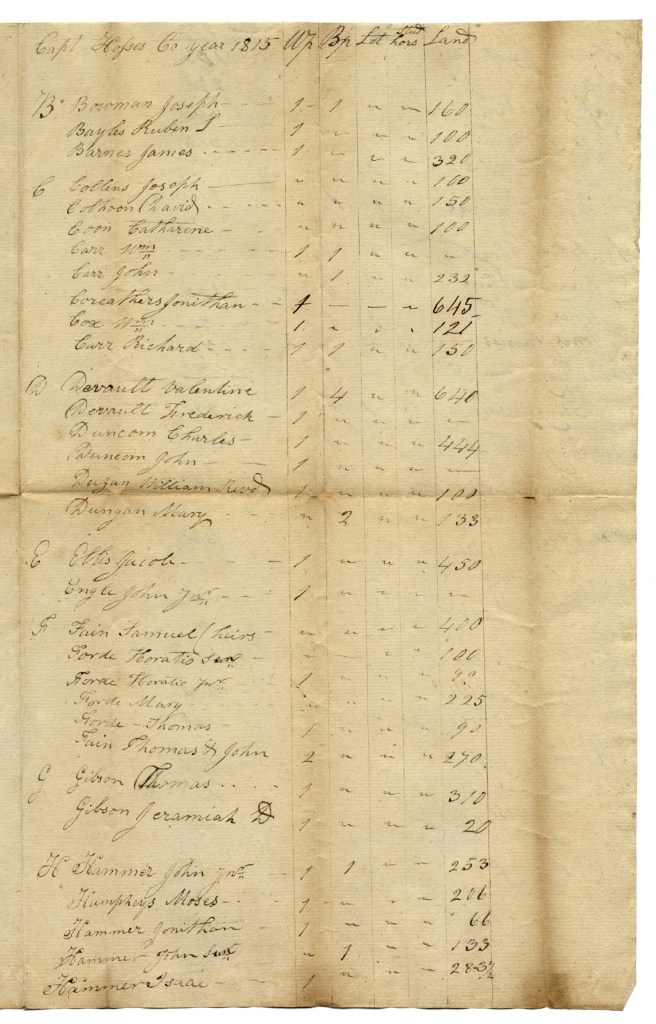 Capt Hosses Co year 1815 Wp Bp Lot Stud hors Land
B Bowman Joseph 1 1 " " 160
Bayles Ruben S 1 " " " 100
Barnes James 1 " " " 320
C Collins Joseph " " " " 100
Colhoon David " " " " 150
Coon Catharine " " " " 100
Carr Wm 1 1 " " "
Carr John " 1 " " 232
Coreathers Jonithan 1 — — " 645
Cox Wm 1 " " " 121
Carr Richard 1 1 " " 150
D Devault Valentine 1 4 " " 640
Devault Frederick 1 " " " —
Duncom Charles 1 " " " 444
Duncom John 1 " " " —
William Revd 1 " " " 100
Dungan Mary " 2 " " 133
E Ellis Jacob 1 " " " 450
Engle John Jnr 1 " " " —
F Fain Samuel heirs " " " " 400
Forde Horatio Senr " — " " 100
Forde Horatio Jnr 1 " " " 90
Forde Mary " " " " 225
Forde Thomas 1 " " " 90
Fain Thomas & John 2 " " " 270
G Gibson Thomas 1 " " " 310
Gibson Jeramiah D 1 " " " 20
H Hammer John Jnr 1 1 " " 253
Humpheys Moses 1 " " " 206
Hammer Jonithan 1 " " " 66
Hammer John Senr " 1 " " 133
Hammer Isaac 1 " " " 283½